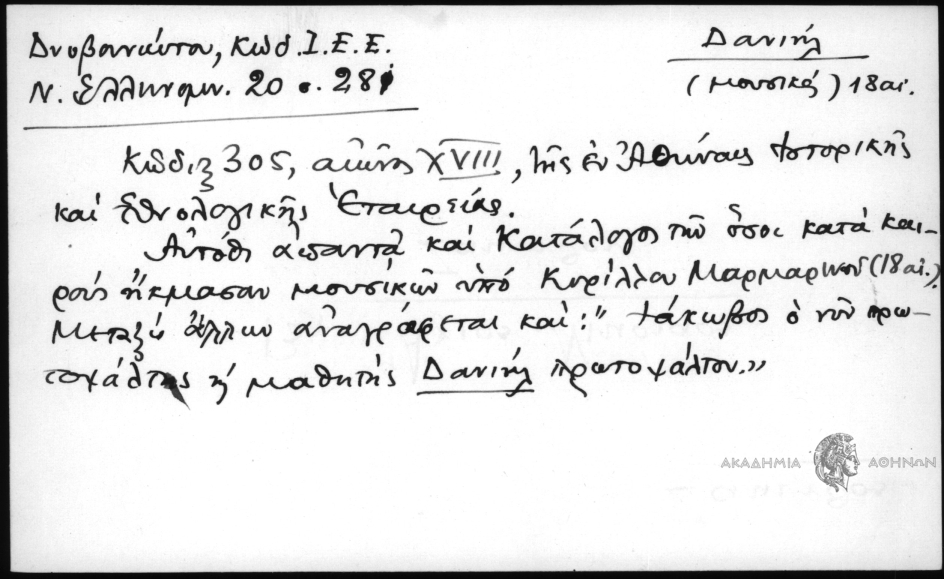 Δυοβουνιώτου, Κώδ. Ι.Ε.Ε.
Ν. Ἑλληνομν. 20 σ. 281
Δανιήλ
(μουσικός) 18 αἰ.
Κῶδιξ 305, αἰῶνος XVIII, τῆς ἐν Ἀθήναις Ἱστορικῆς
καὶ Ἐθνολογικῆς Ἑταιρείας.
Αὐτόθι ἀπαντᾶ καὶ Κατάλογος τῶν ὅσοι κατὰ και-
ροὺς ἤκμασαν μουσικῶν ὑπὸ Κυρίλλου Μαρμαρινοῦ (18 αἰ.).
Μεταξὺ ἄλλων ἀναγράφεται καὶ: "Ἰάκωβος ὁ νῦν πρω-
τοψάλτης καὶ μαθητὴς Δανιὴλ πρωτοψάλτου."
ΑΚΑΔΗΜΙΑ ΑΘΗΝΩΝ